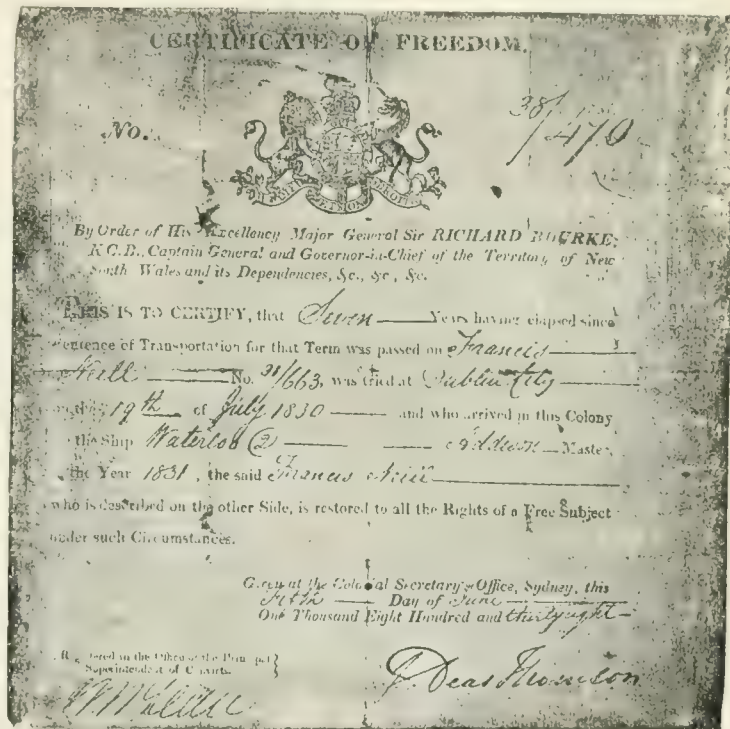 CERTIFICATE OF FREEDOM.
No. 38/470
By Order of His Excellency Major General Sir RICHARD BOURKE,
K.C.B., Captain General and Governor-in-Chief of the Territory of New
South Wales and its Dependencies, &c., &c., &c.
THIS IS TO CERTIFY, that Seven Years having elapsed since
Sentence of Transportation for that Term was passed on Francis
Neill No. 31/663, was tried at Dublin City
on the 19th of July 1830 and who arrived in this Colony
the Ship Waterloo (2) Addison Master,
the Year 1831, the said Francis Neill
who is described on the other Side, is restored to all the Rights of a Free Subject
under such Circumstances.
Given at the Colonial Secretary's Office, Sydney, this
Day of June
One Thousand Eight Hundred and thirty eight
Registered in the Office of the Principal
Superintendent of Convicts.
E Deas Thomson